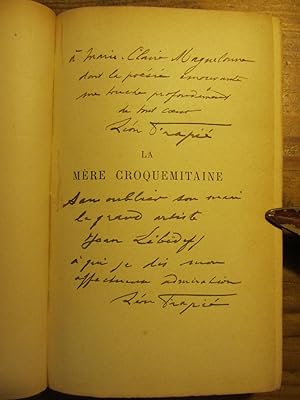 à Marie-Claire Maguelonne
dont la poésie émouvante
me touche profondément
de tout cœur
Léon Frapié
LA
MÈRE CROQUEMITAINE
Sans oublier son mari
le grand artiste
Jean Lébédeff
à qui je dis mon
affectueuse admiration
Léon Frapié